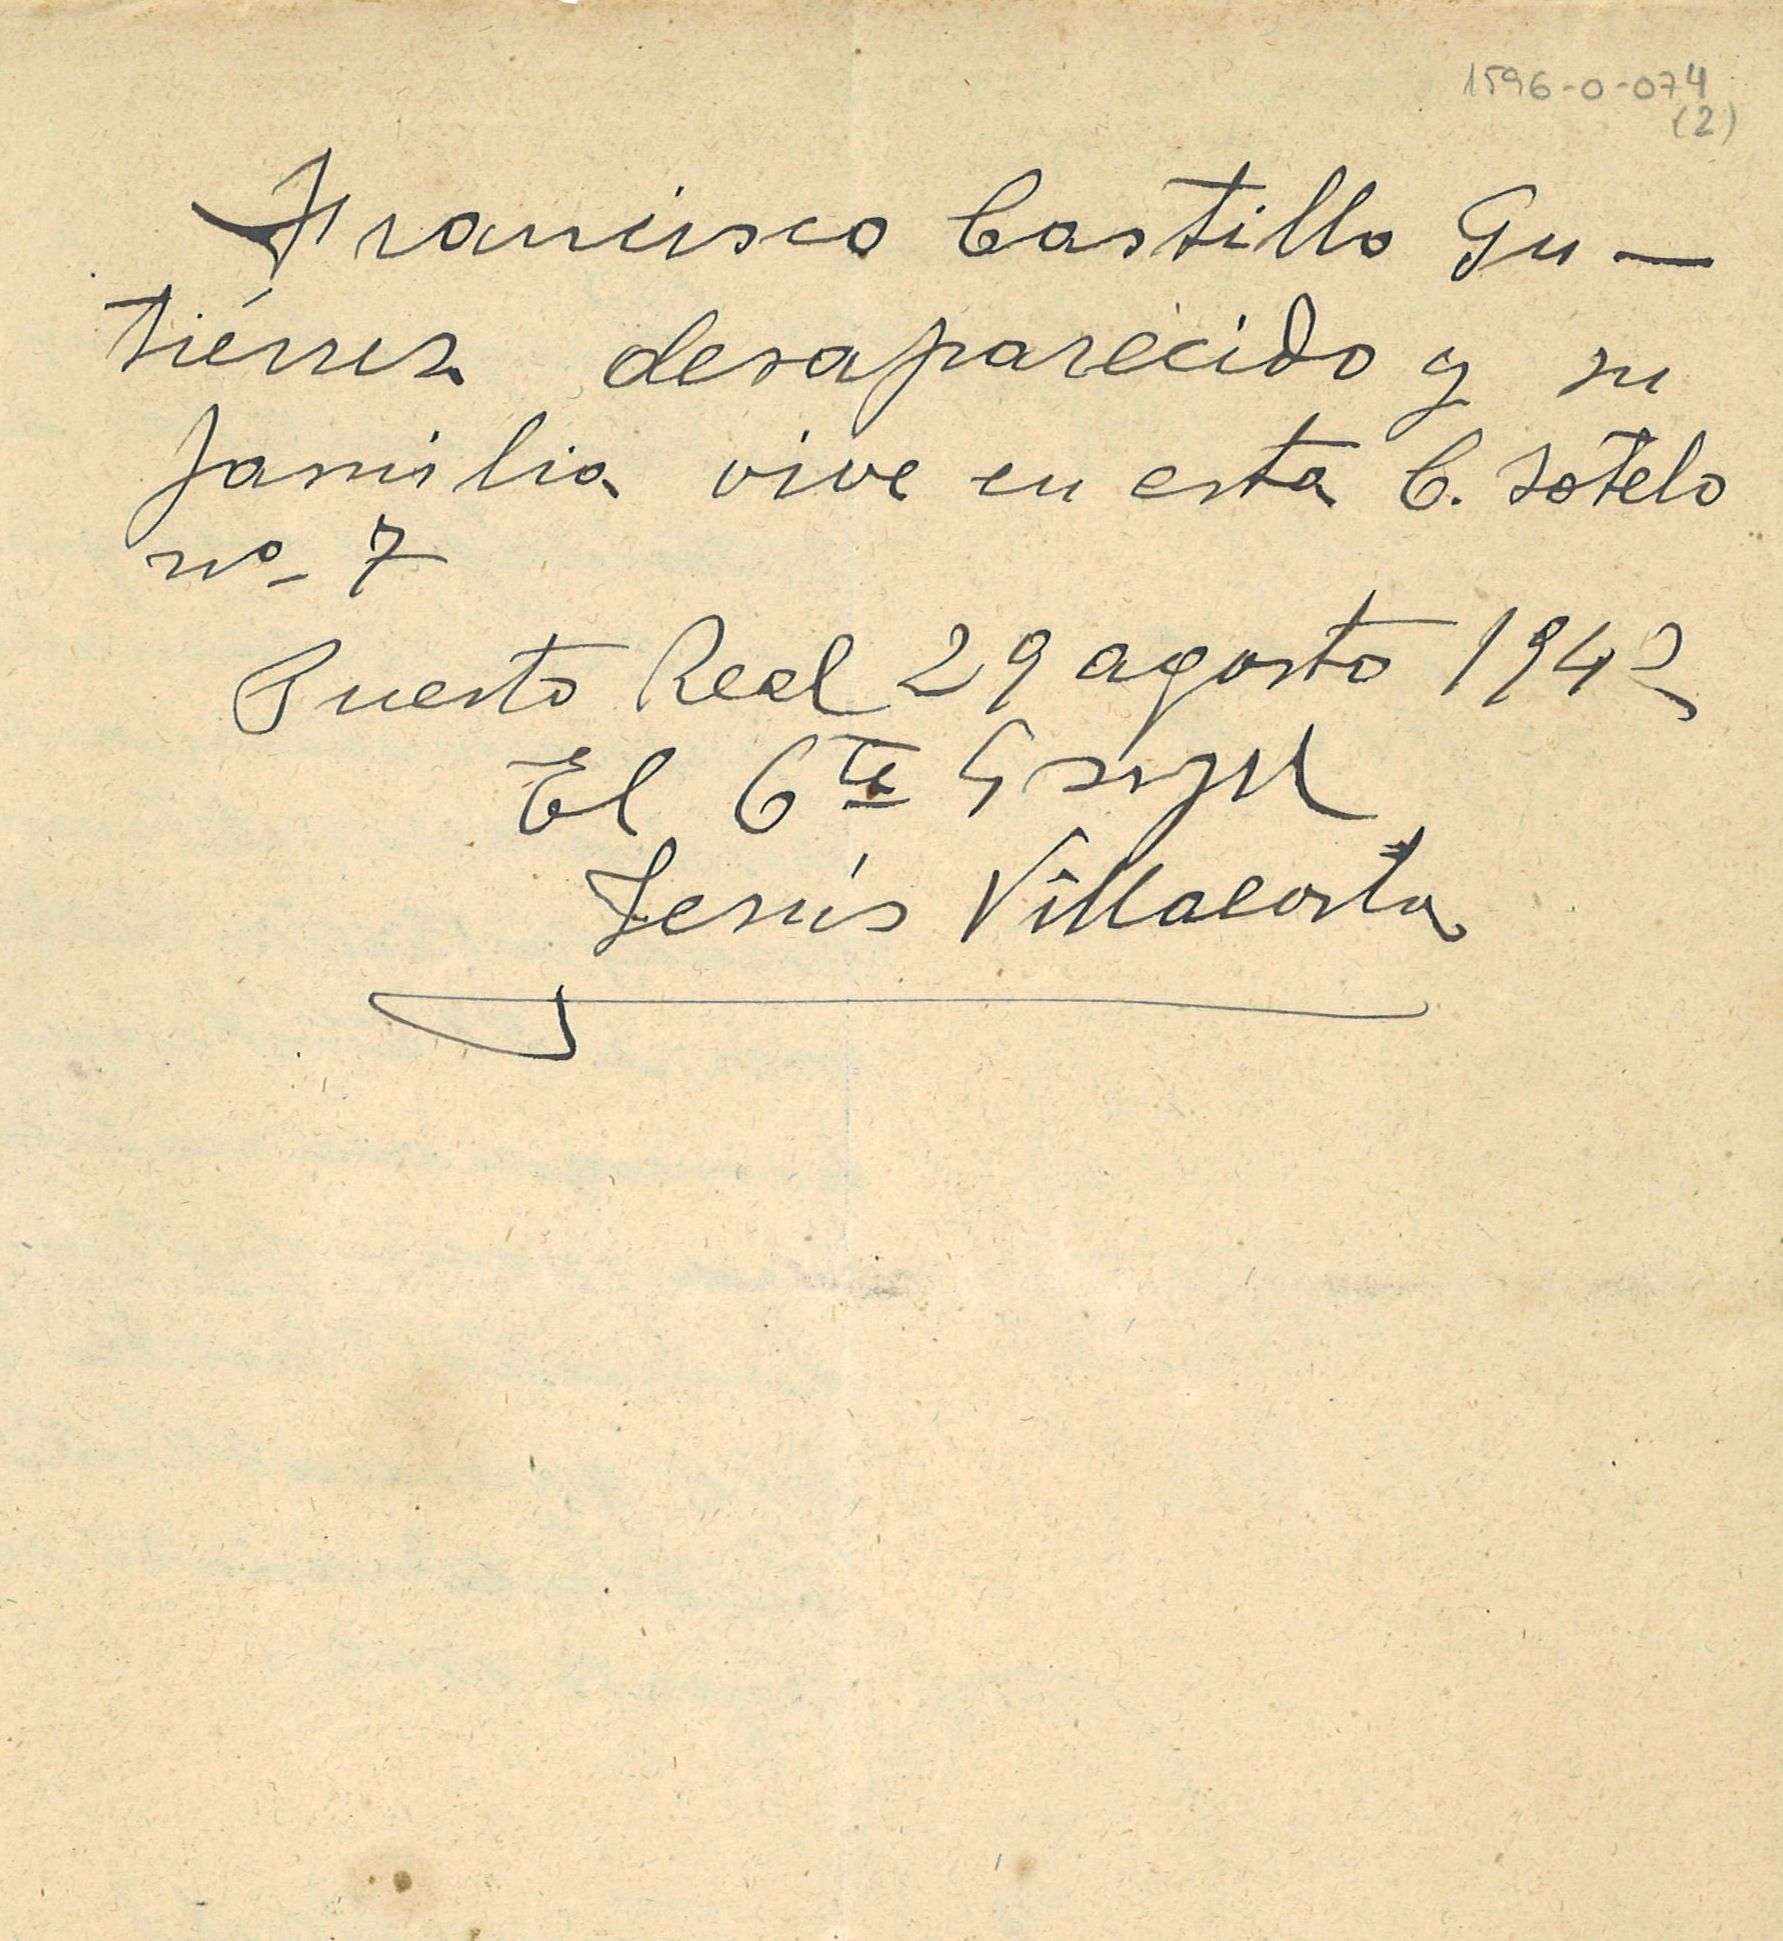 1596-0-074
(2)
Francisco Castillo Gu—
tiérrez desaparecido y su
familia vive en esta C. Sotelo
nº 7
Puesto Real 29 agosto 1942
El Cte
Jesús Villacorta